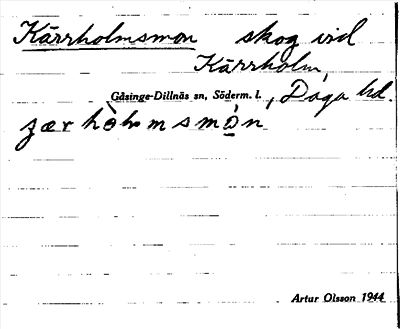 Kärrholmsmon skog vid
Kärrholm,
Gåsinge-Dillnäs sn, Söderm. l., Daga hd.
Artur Olsson 1944